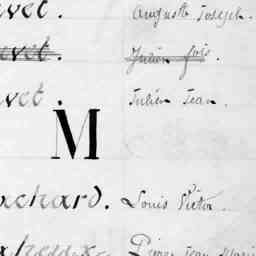 vet. Auguste Joseph.
vet. Julien fois.
vet. Julien Jean.
M
achard. Louis Victor.
Pierre Jean Marie